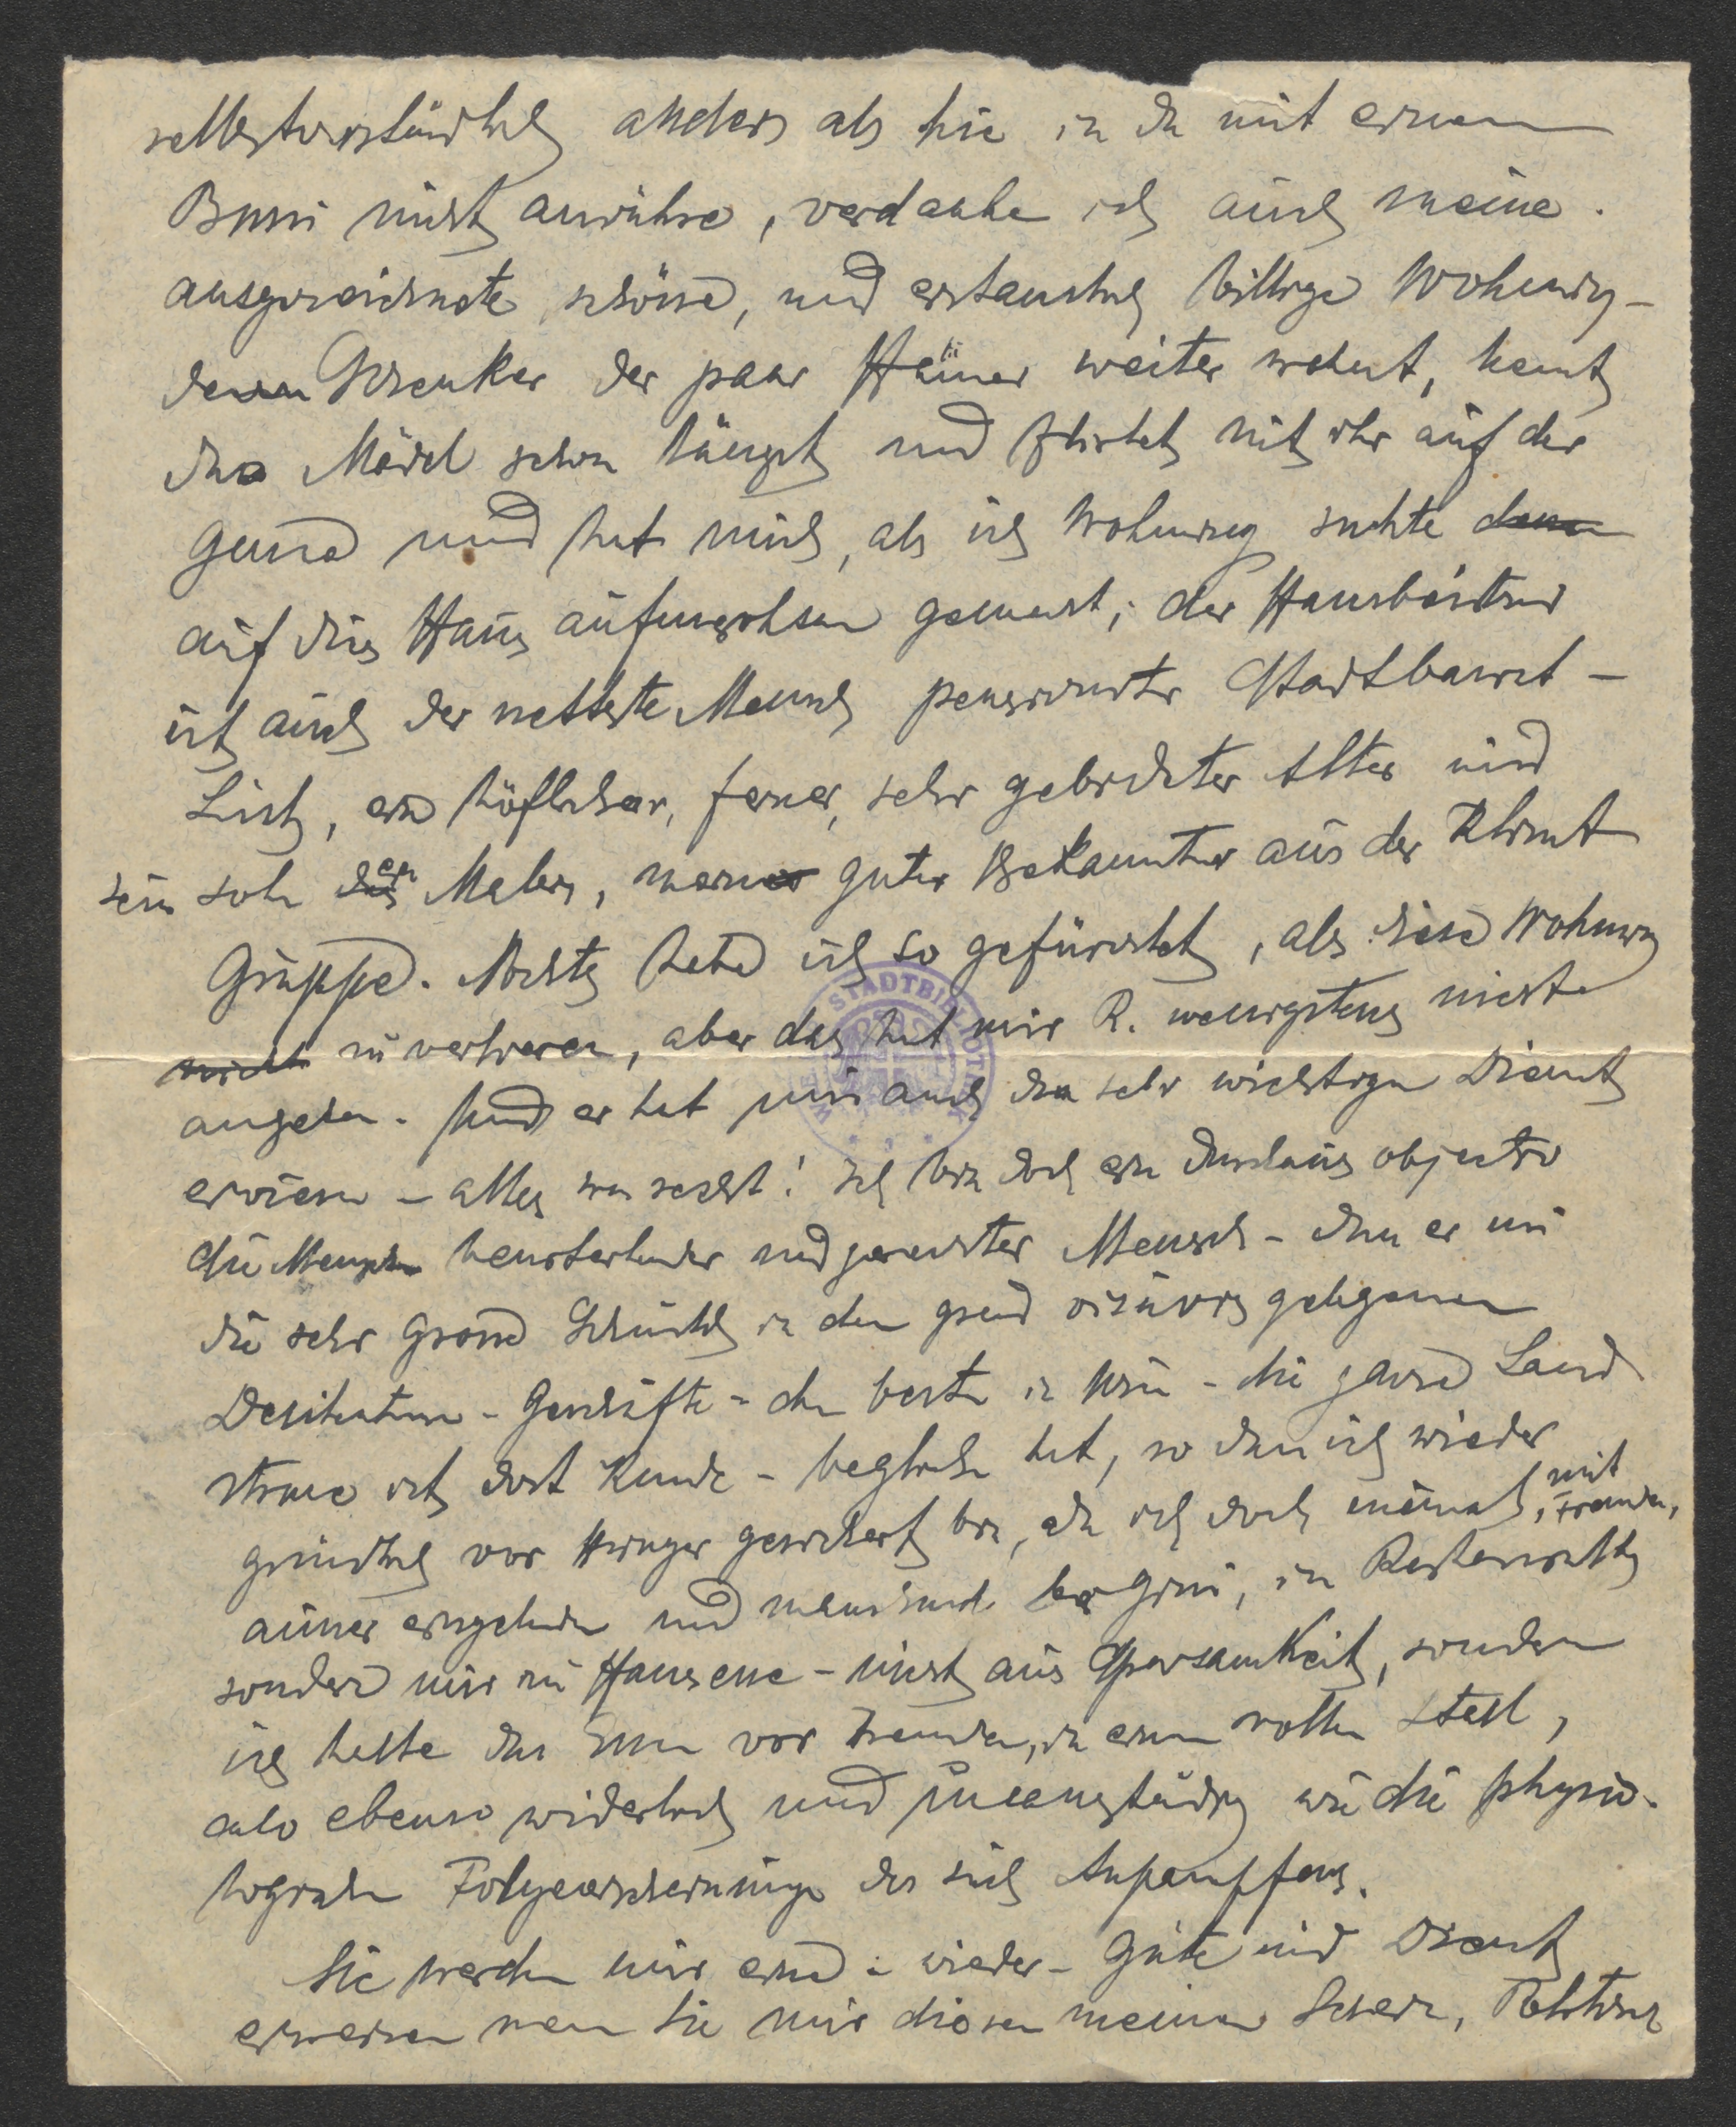 selbstverständlich anders als hie in da mit einem
Bussi nicht anrühre, verdanke ich auch meine
ausgezeichnete schöne, und erstaunlich billige Wohnung –
denn Schenker der paar Häuser weiter wohnt, kennt
das Mädel schon längst und flirtet mit ihr auf der
Gasse und hat mich, als ich Wohnung suchte
auf dies Haus aufmerksam gemacht; der Hausbesitzer
ist auch der netteste Mensch pensionierter Stadtbaurat –
List, ein höflicher, feiner, sehr gebildeter Alter und
sein Sohn der Maler, mein guter Bekannter aus der Klimt
Gruppe. Nichts habe ich so gefürchtet, als diese Wohnung
zu verlieren, aber das hat mir R. wenigstens nicht
angetan. Und er hat mir auch den sehr wichtigen Dienst
erwiesen – alles was recht! Ich bin doch ein durchaus objectiv
die Menschen beurteilender und gerechter Mensch – dass er mir
die sehr grosse Schuld in dem grad visavis gelegenen
Delikatessen-Geschäfte – dem besten in Wien – die ganze Land
strasse ist dort Kunde – beglichen hat, so dass ich wieder
gründlich vor Hunger gesichert bin, da ich doch niemals, mit Fremden,
ausser eingeladen und manchmal bei Grini, in Restaurants
sondern nur zu Hause esse – nicht aus Sparsamkeit, sondern
ich halte das Essen vor Fremden, in einem vollen Stall,
also ebenso widerlich und unanständig wie die physio-
logischen Folgeerscheinungen des sich Anpampfens.
Sie werden mir eine – wieder – Güte und Dienst
erweisen wenn Sie mir diesen meinen
STADTBIBLIOTHEK